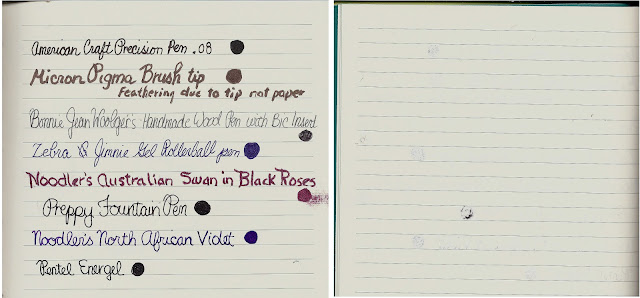 American Craft Precision Pen .08
Micron Pigma Brush tip
Feathering due to tip not paper
Bonnie Jean Woolger's Handmade Wood Pen with Bic Insert
Zebra B Jimnie Gel Rollerball pen
Noodler's Australian Swan in Black Roses
Preppy Fountain Pen
Noodler's North African Violet
Pentel Energel